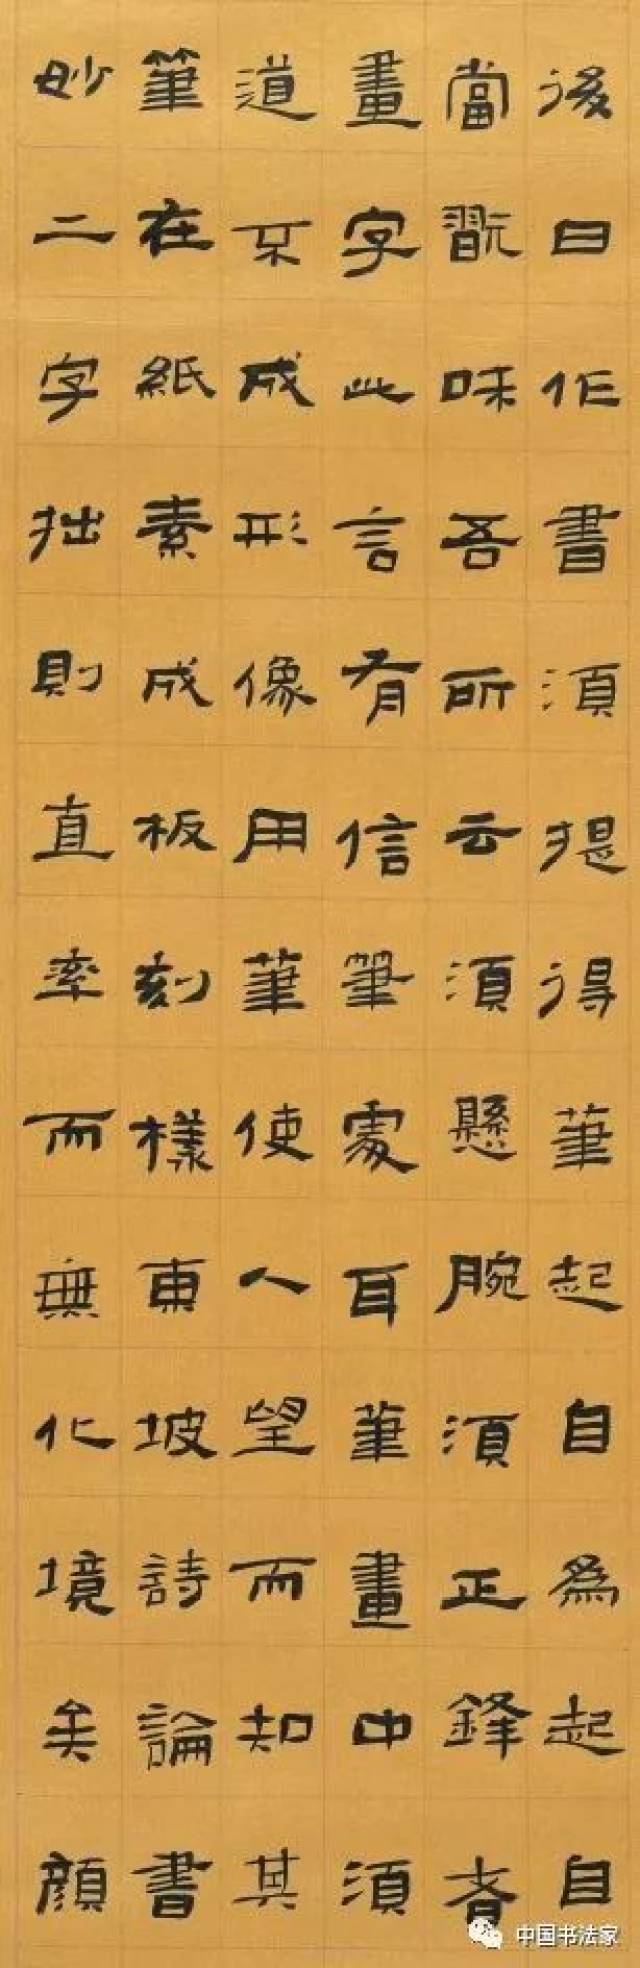 後曰作書須提得筆起自為起自
當翫味吾所云須懸腕須正鋒者
畫字此言有信筆處耳筆畫中須
道不成形像用筆使人望而知其
筆在紙素成板刻樣東坡詩論書
妙二字拙則直率而無化境矣顏
中国书法家